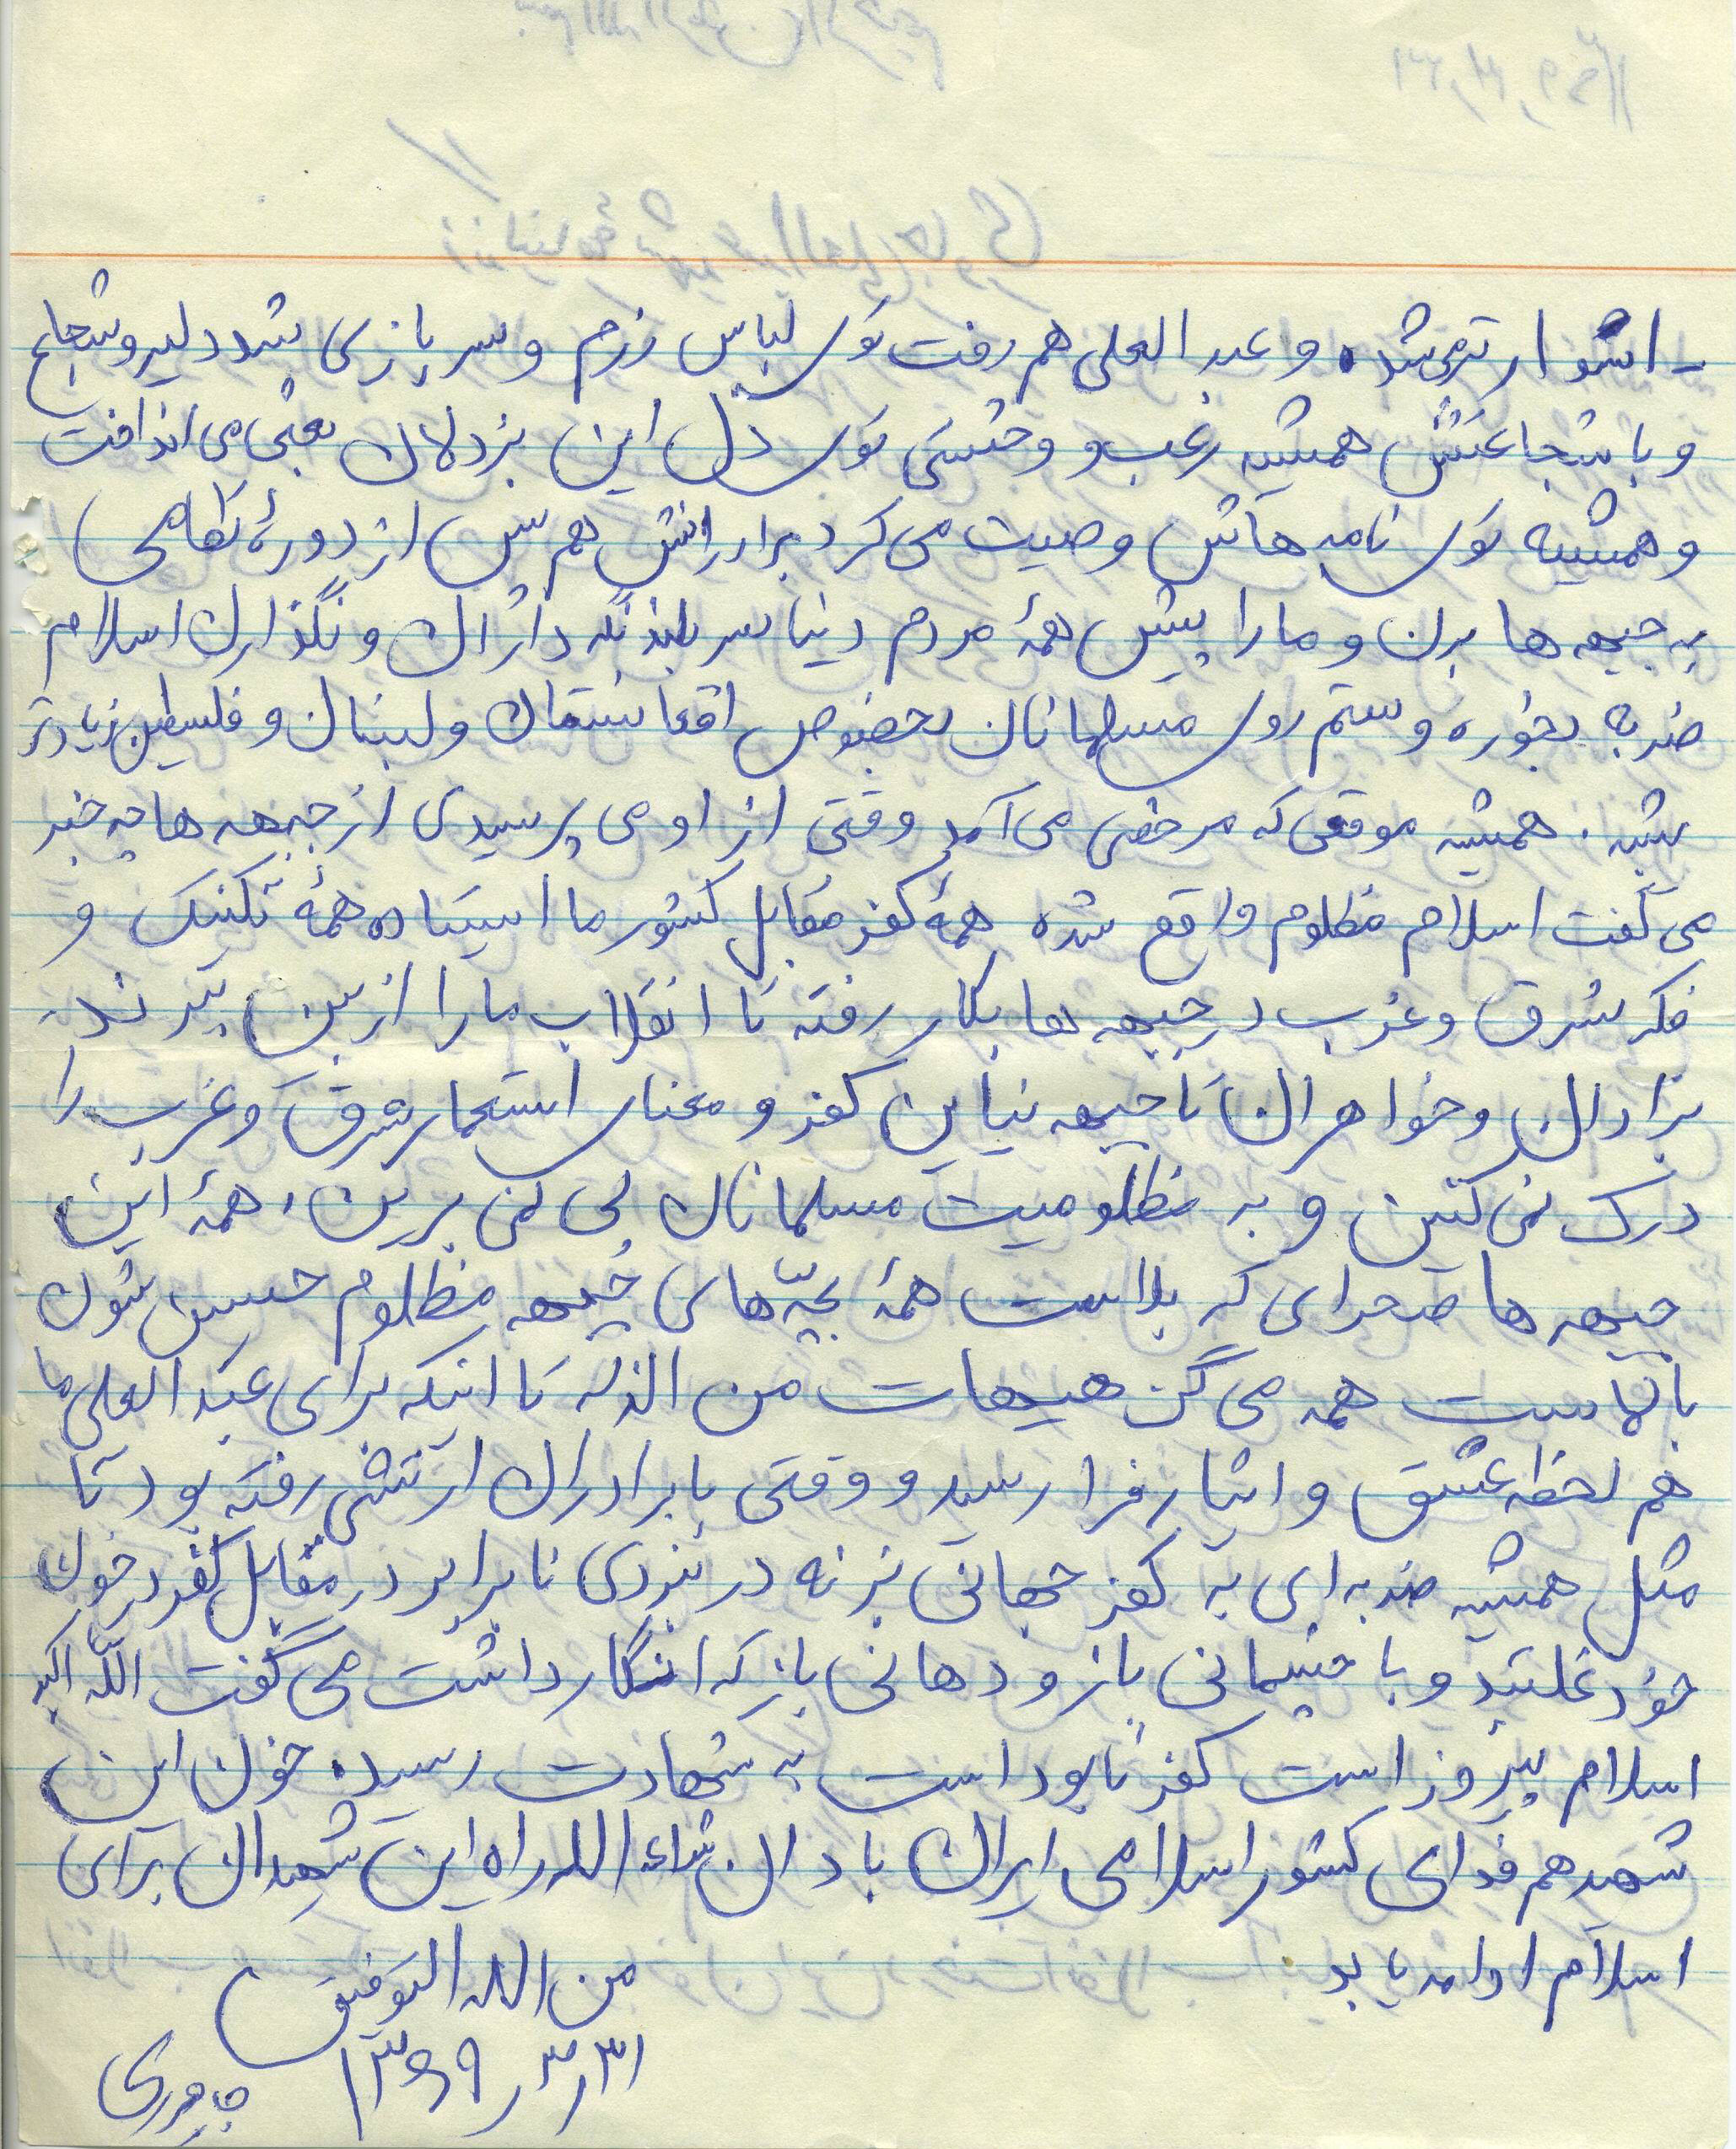 ـ استوارتر می‌شد و عبدالعلی هم رفت توی لباس رزم و سربازی شد دلیر و شجاع
و با شجاعتش همیشه رعب و وحشتی توی دل این بزدلان بعثی می‌انداخت
و همیشه توی نامه‌هاش وصیت می‌کرد برادرانش هم پس از دورۀ نظامی
به جبهه‌ها برن و ما را پیش همۀ مردم دنیا سر بلند نگه دارن و نگذارن اسلام
ضربه بخوره و ستم روی مسلمانان بخصوص افغانستان و لبنان و فلسطین زیادتر
بشه. همیشه موقعی که مرخصی می‌آمد وقتی از او می‌پرسیدی از جبهه‌ها چه خبر
می‌گفت اسلام مظلوم واقع شده همۀ کفر مقابل کشور ما ایستاده همۀ تکنیک و
فکر شرق و غرب در جبهه‌ها بکار رفته تا انقلاب ما را از بین ببرند.
برادران و خواهران تا جبهه نیاین کفر و معنای استعمار شرق و غرب را
درک نمی‌کنین و به مظلومیت مسلمانان پی نمی‌برین. همۀ این
جبهه‌ها صحرای کربلاست همۀ بچّه‌های جبهه مظلوم حسین شون
با آنهاست همه می‌گن هیهات من الذله تا اینکه برای عبدالعلی ما
هم لحظه عشق و ایثار فرا رسید و وقتی با برادران ارتشی رفته بود تا
مثل همیشه ضربه‌ای به کفر جهانی بزنه در نبردی نابرابر در مقابل کفر در خون
خود غلتید و با چشمانی باز و دهانی باز که انگار داشت می‌گفت اللّه اکبر
اسلام پیروز است کفر نابود است به شهادت رسید. خون این
شهید هم فدای کشور اسلامی ایران باد ان شاءالله راه این شهیدان برای
اسلام ادامه یابد.
من الله التوفیق
۱۳۶۹٫۳٫۳۱